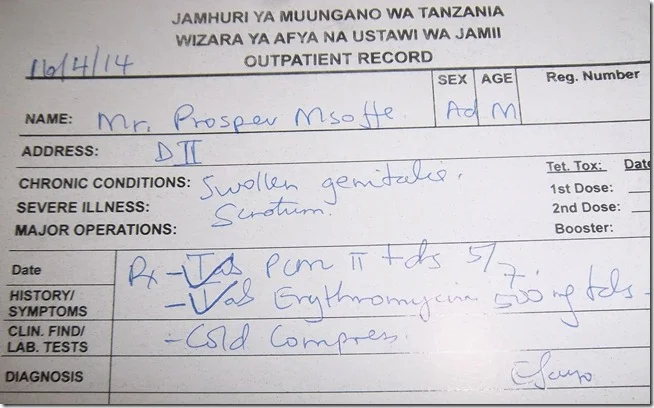 JAMHURI YA MUUNGANO WA TANZANIA
WIZARA YA AFYA NA USTAWI WA JAMII
OUTPATIENT RECORD
16/4/14
SEX AGE Reg. Number
NAME: Mr. Prosper Msoffe Ad M
ADDRESS: D II
CHRONIC CONDITIONS: Swollen genitalia.
SEVERE ILLNESS: Scrotum.
MAJOR OPERATIONS:
Tet. Tox: Date
1st Dose:
2nd Dose:
Booster:
Date Rx - Tab PCM II tds 5/7.
HISTORY/ SYMPTOMS - Tab Erythromycin 500 mg tds -
CLIN. FIND/ LAB. TESTS - Cold Compress.
DIAGNOSIS